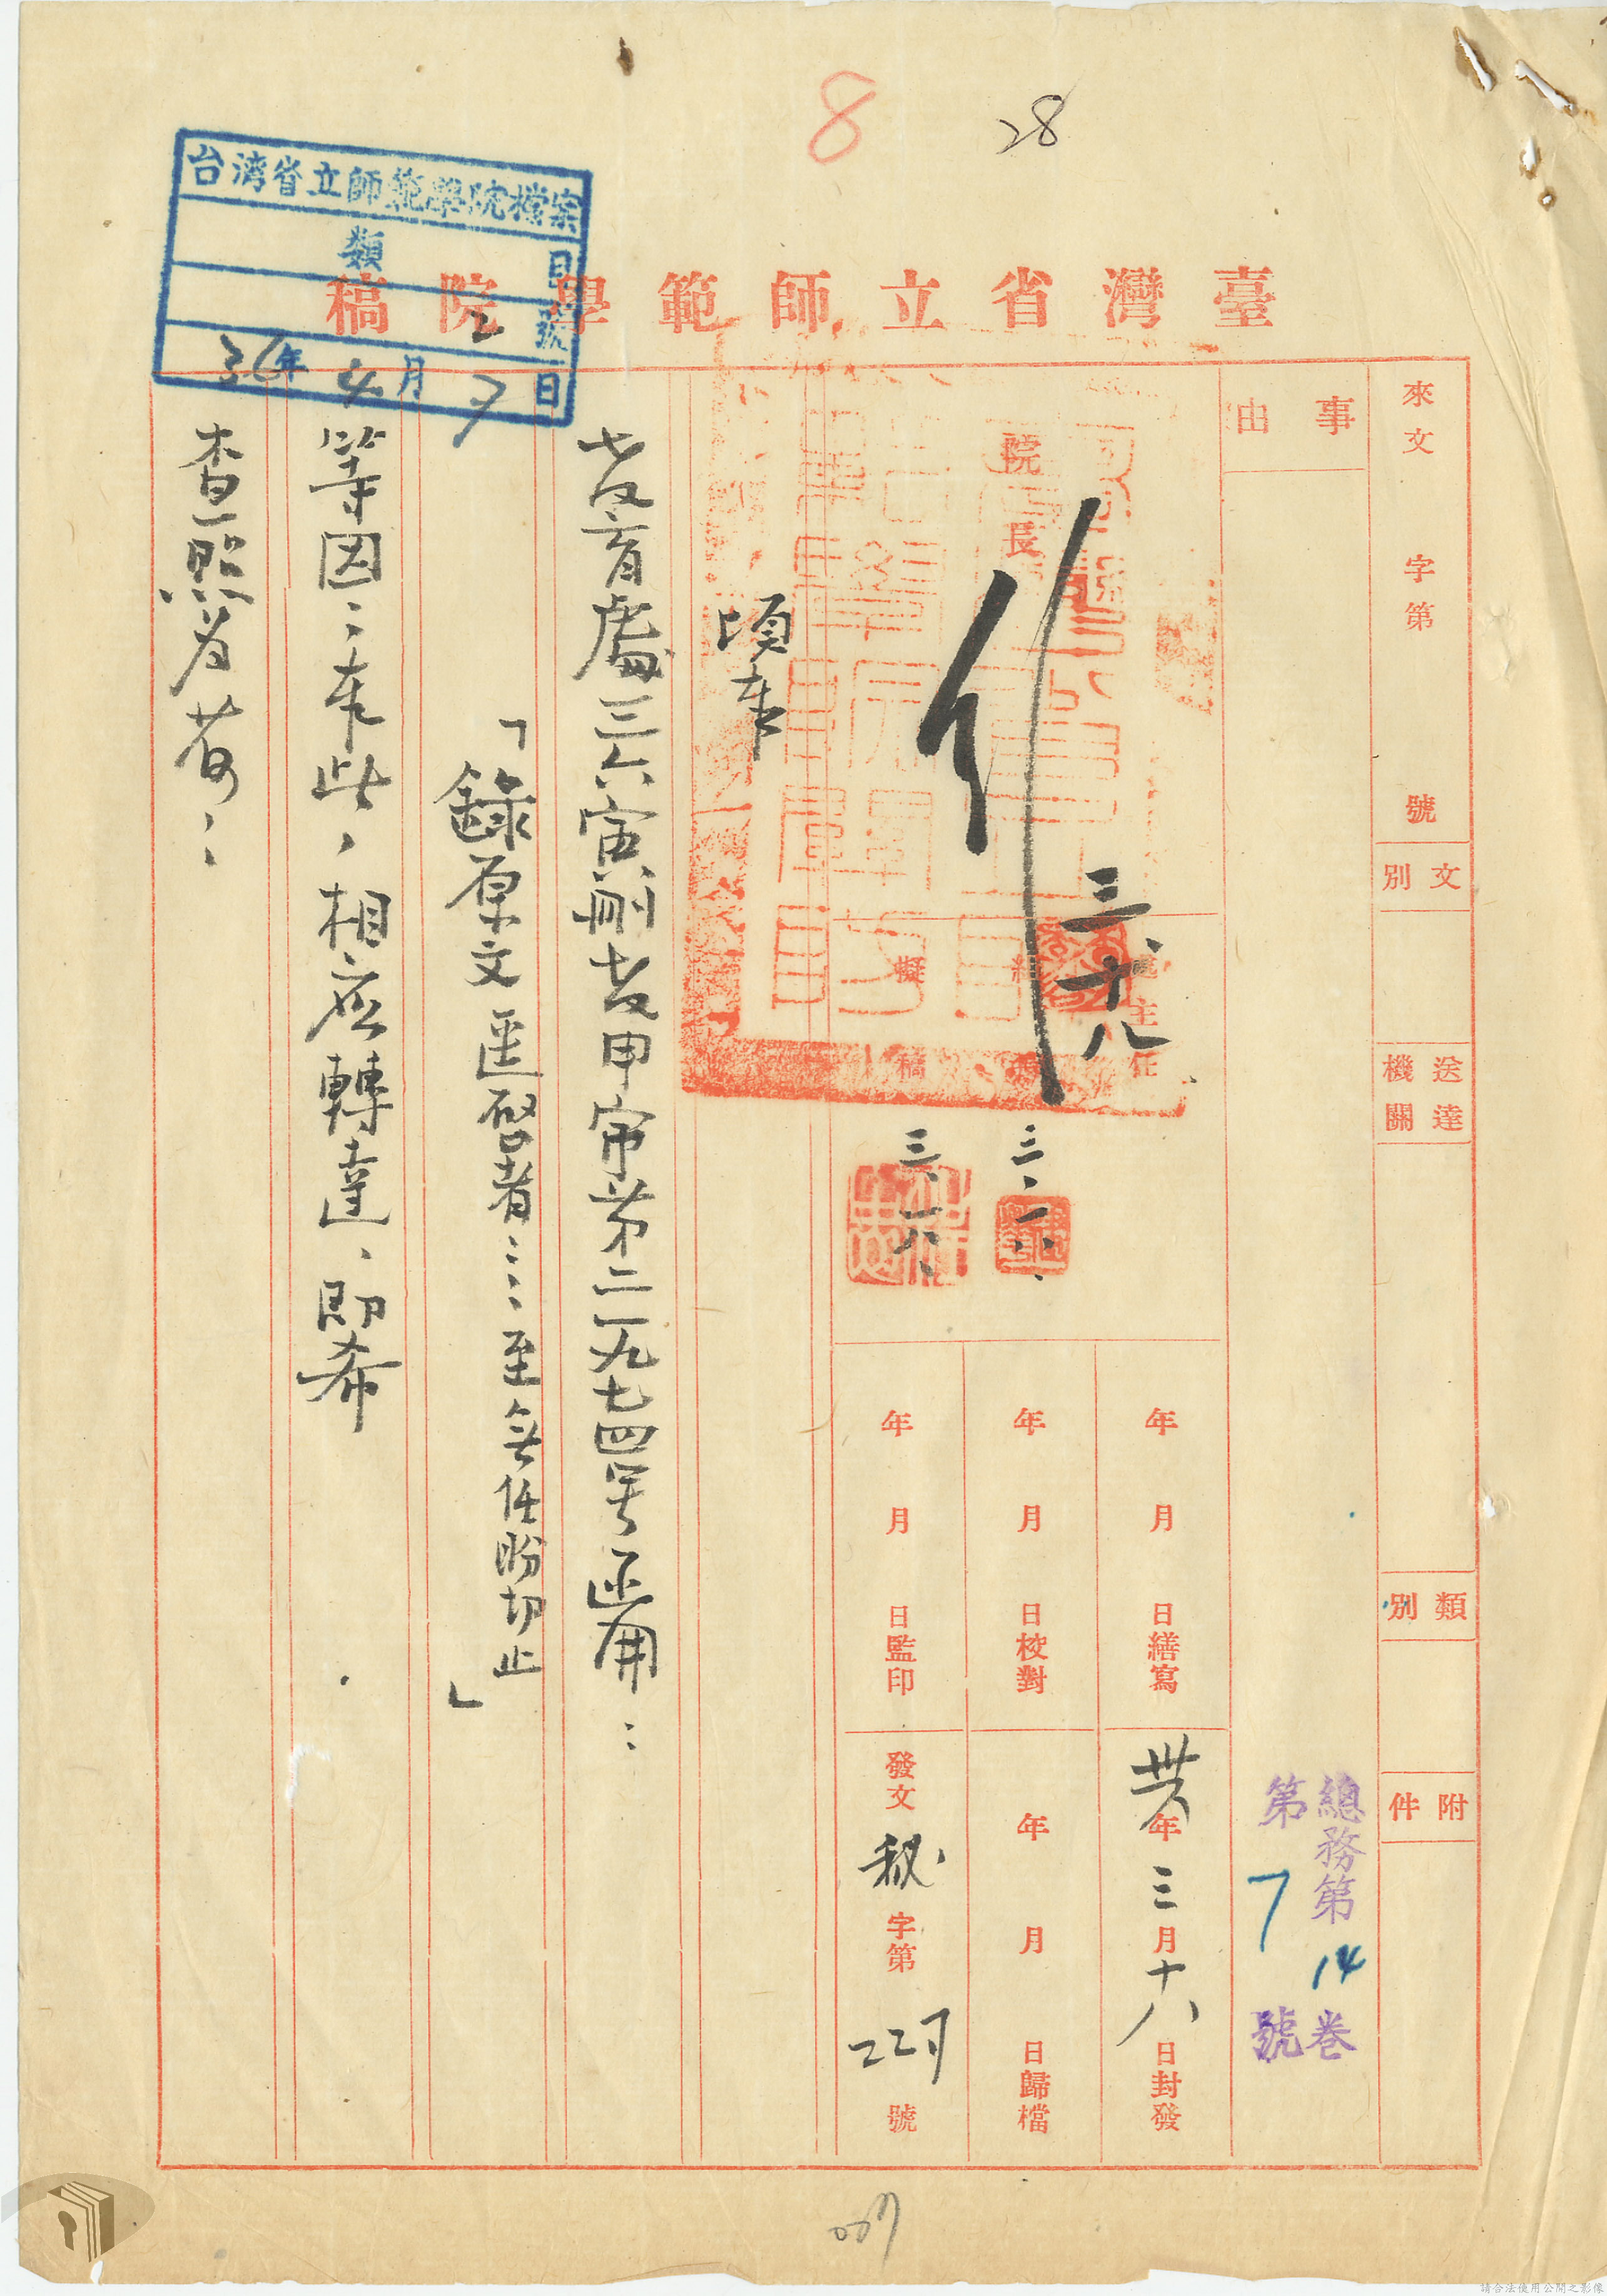 8
28
台湾省立師範學院檔案
類 目
2 號
36年4月7日
臺灣省立師範學院稿
來文 字第 號
文別
送達機關
類別
附件
事由
總務第14卷
第7號
院長
三、十八
主任
擬稿
三、一八、
三、一八、
年 月 日繕寫
年 月 日校對
年 月 日監印
卅六年三月十八日封發
年 月 日歸檔
發文秘字第 號
頃奉
教育處三六寅刪教甲字第二一九七四號函開：
「錄原文逕啓者……至無任盼切止」
等因；奉此，相應轉達，即希
查照為荷：
請合法使用公開之影像